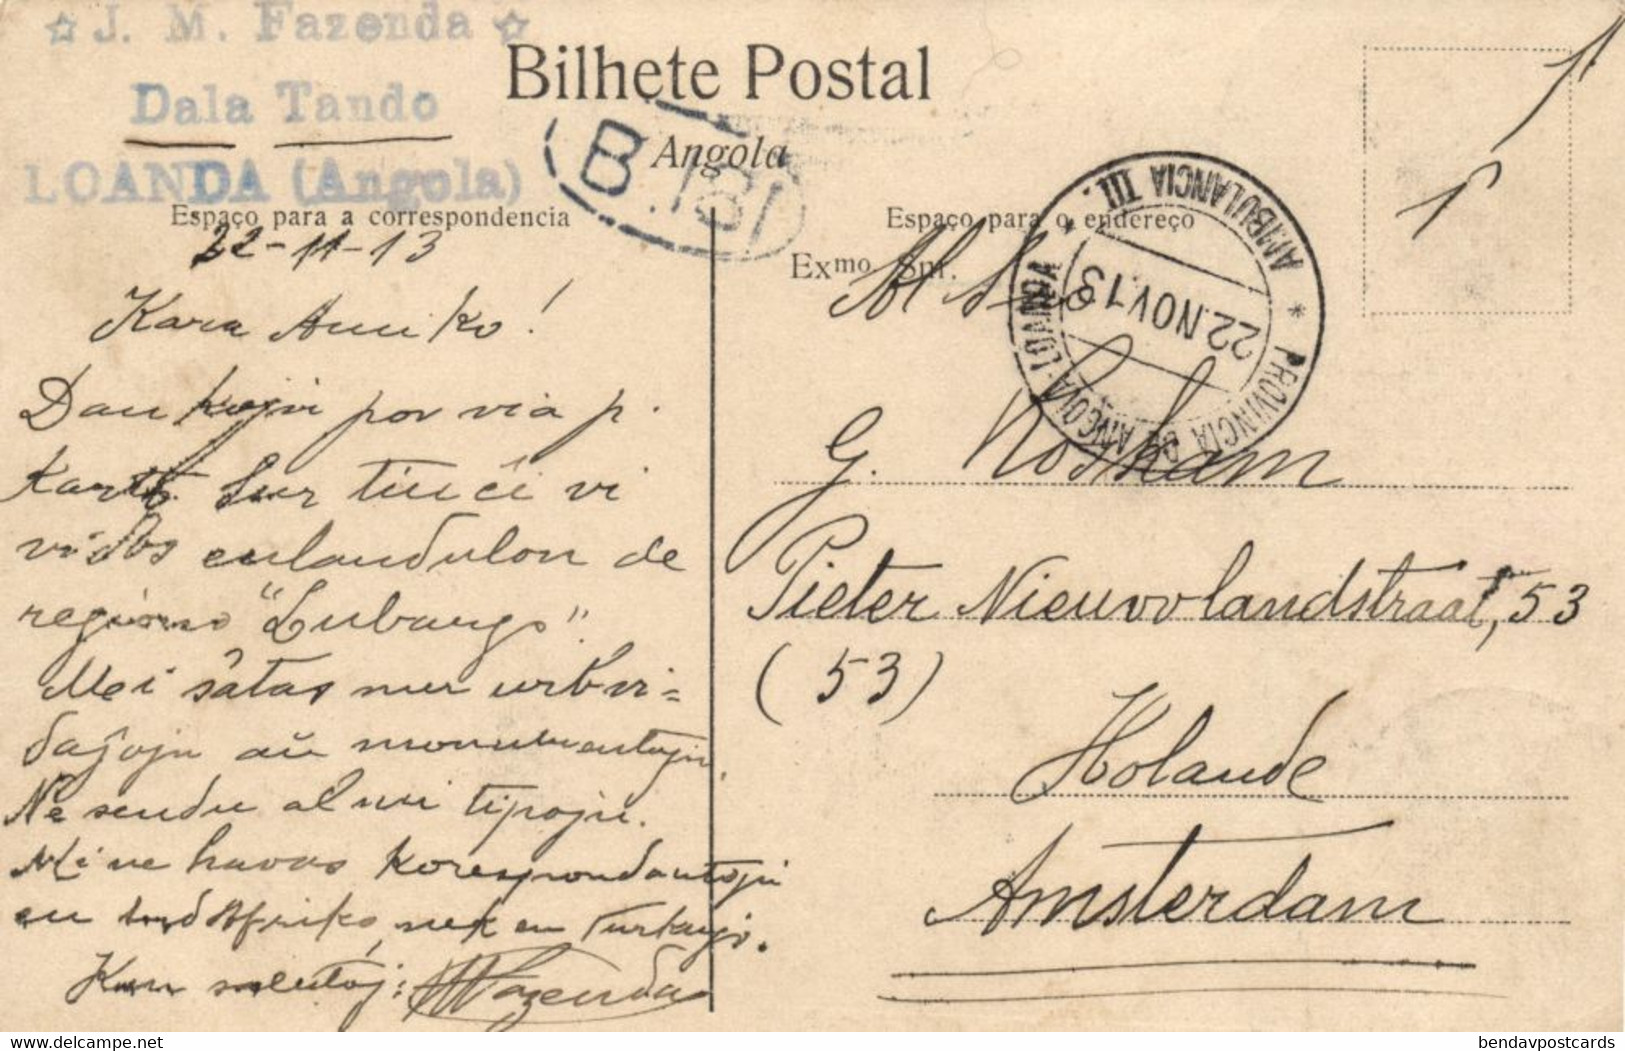 ☆ J. M. Fazenda ☆
Dala Tando
LOANDA (Angola)
Bilhete Postal
Angola
B.
Espaço para a correspondencia
22-11-13
Kara Amiko!
Dankojn por via p.
Karto. Sur tiu ĉi vi
vidos enlandulon de
regiono "Lubango".
Mi ŝatas nur urbvi-
daĵojn aŭ monumentojn.
Ne sendu al mi tipojn.
Mi ne havas korespondantojn
en sud Afriko, nek en Turkujo.
Kun salutoj: JMFazenda
Espaço para o endereço
Exmo Snr.
Al S-ro
G. Roskam
Pieter Nieuwlandstraat, 53
(53)
Holande
Amsterdam
PROVINCIA DE ANGOLA · LOANDA
* AMBULANCIA III. *
22.NOV.13
delcampe.net
bendavpostcards